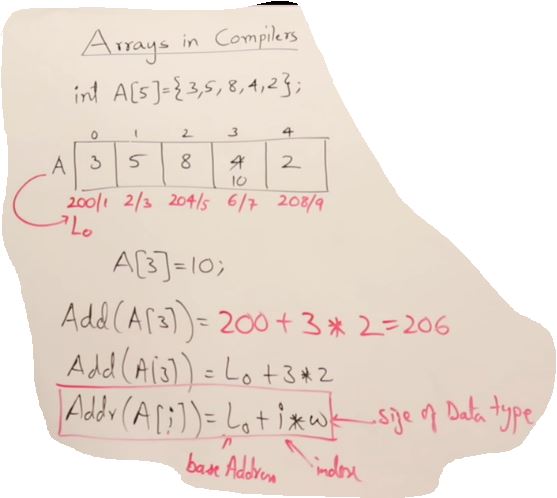 Arrays in Compilers
int A[5]={3,5,8,4,2};
0 1 2 3 4
A 3 5 8 4 2
10
200/1 2/3 204/5 6/7 208/9
L₀
A[3]=10;
Add(A[3])= 200+3*2=206
Add(A[3]) = L₀+3*2
Addr(A[i])= L₀+i*w size of Data type
base Address index